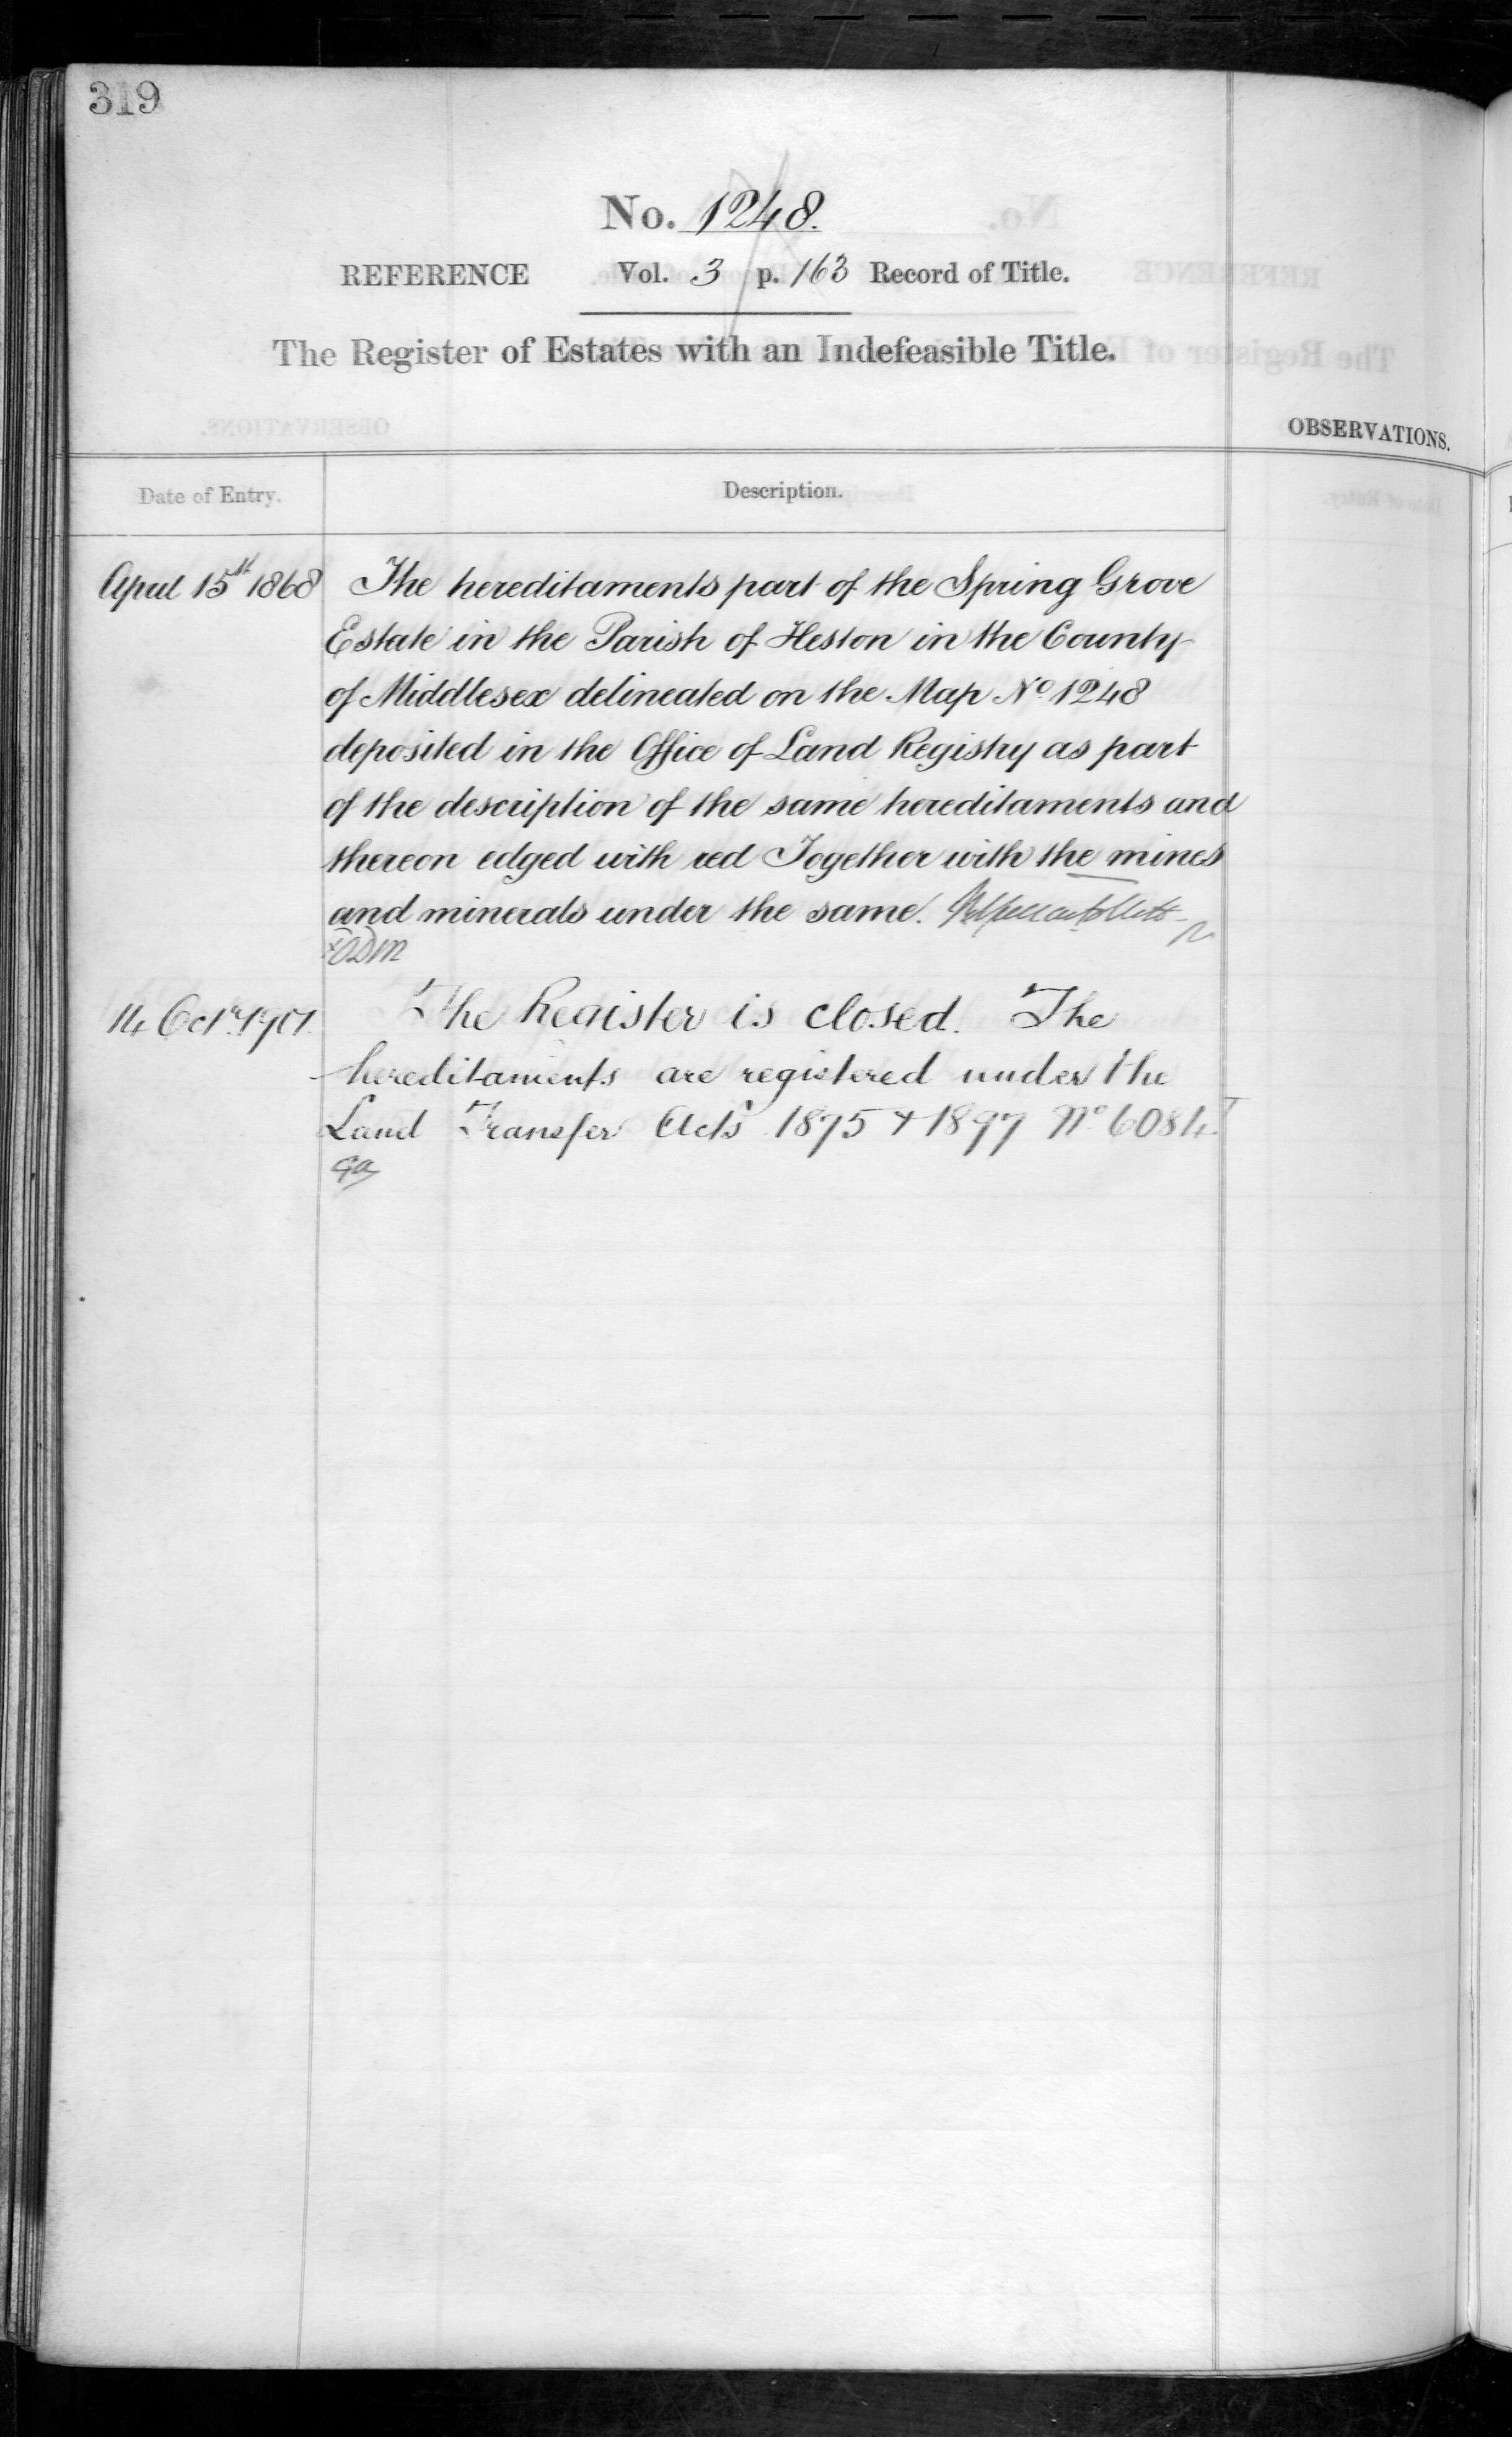 319
No. 1248.
REFERENCE Vol. 3 p. 163 Record of Title.
The Register of Estates with an Indefeasible Title.
OBSERVATIONS.
Date of Entry. Description.
April 15th 1868 The hereditaments part of the Spring Grove
Estate in the Parish of Heston in the County
of Middlesex delineated on the Map No 1248
deposited in the Office of Land Registry as part
of the description of the same hereditaments and
thereon edged with red Together with the mines
and minerals under the same.
14 Octr. 1901. The Register is closed. The
hereditaments are registered under the
Land Transfer Acts 1875 & 1897 No 6084.